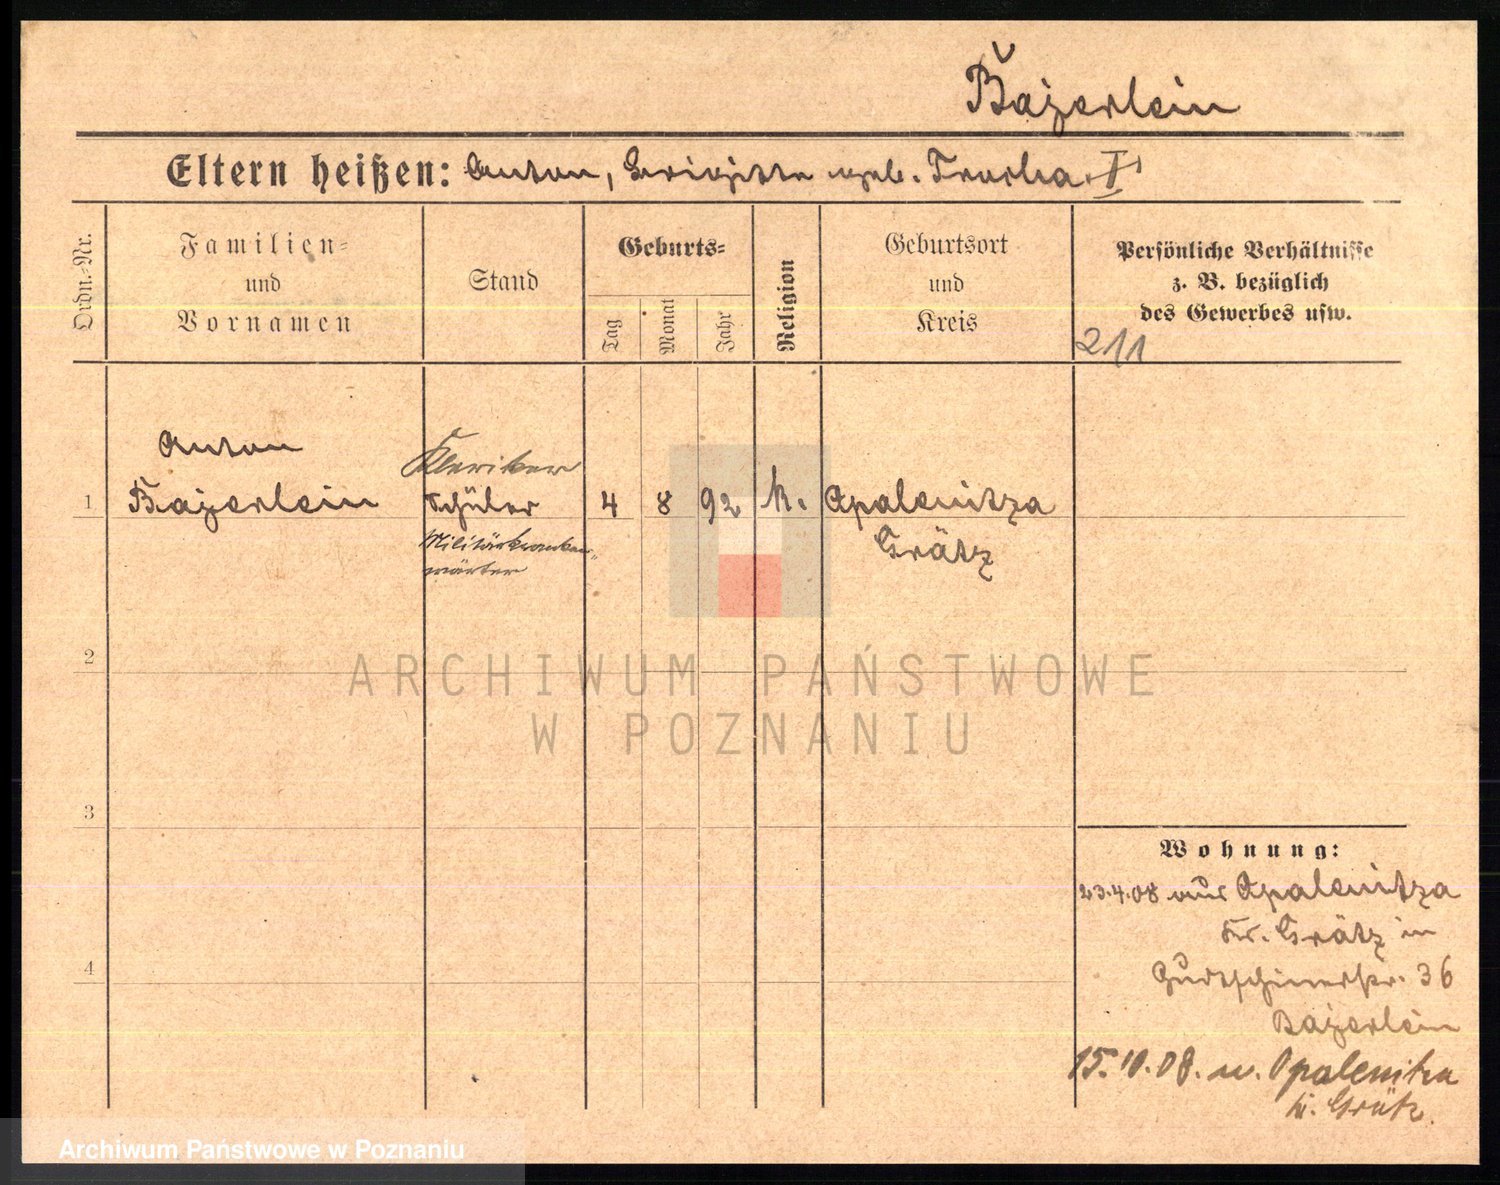 Bajerlein
Eltern heißen: Anton, Brigitte geb. Trocha
Ordn.-Nr.
Familien-
und
Vornamen
Stand
Geburts-
Tag
Monat
Jahr
Religion
Geburtsort
und
Kreis
Persönliche Verhältnisse
z. B. bezüglich
des Gewerbes usw.
211
Anton
Kleriker
1 Bajerlein Schüler 4 8 92 k. Opalenitza
Militärkranken-
wärter
Grätz
2
ARCHIWUM PAŃSTWOWE
W POZNANIU
3
Wohnung:
23.4.08 aus Opalenitza
Kr. Grätz in
4
36
Bajerlein
15.10.08. n. Opalenitza
Grätz
Archiwum Państwowe w Poznaniu